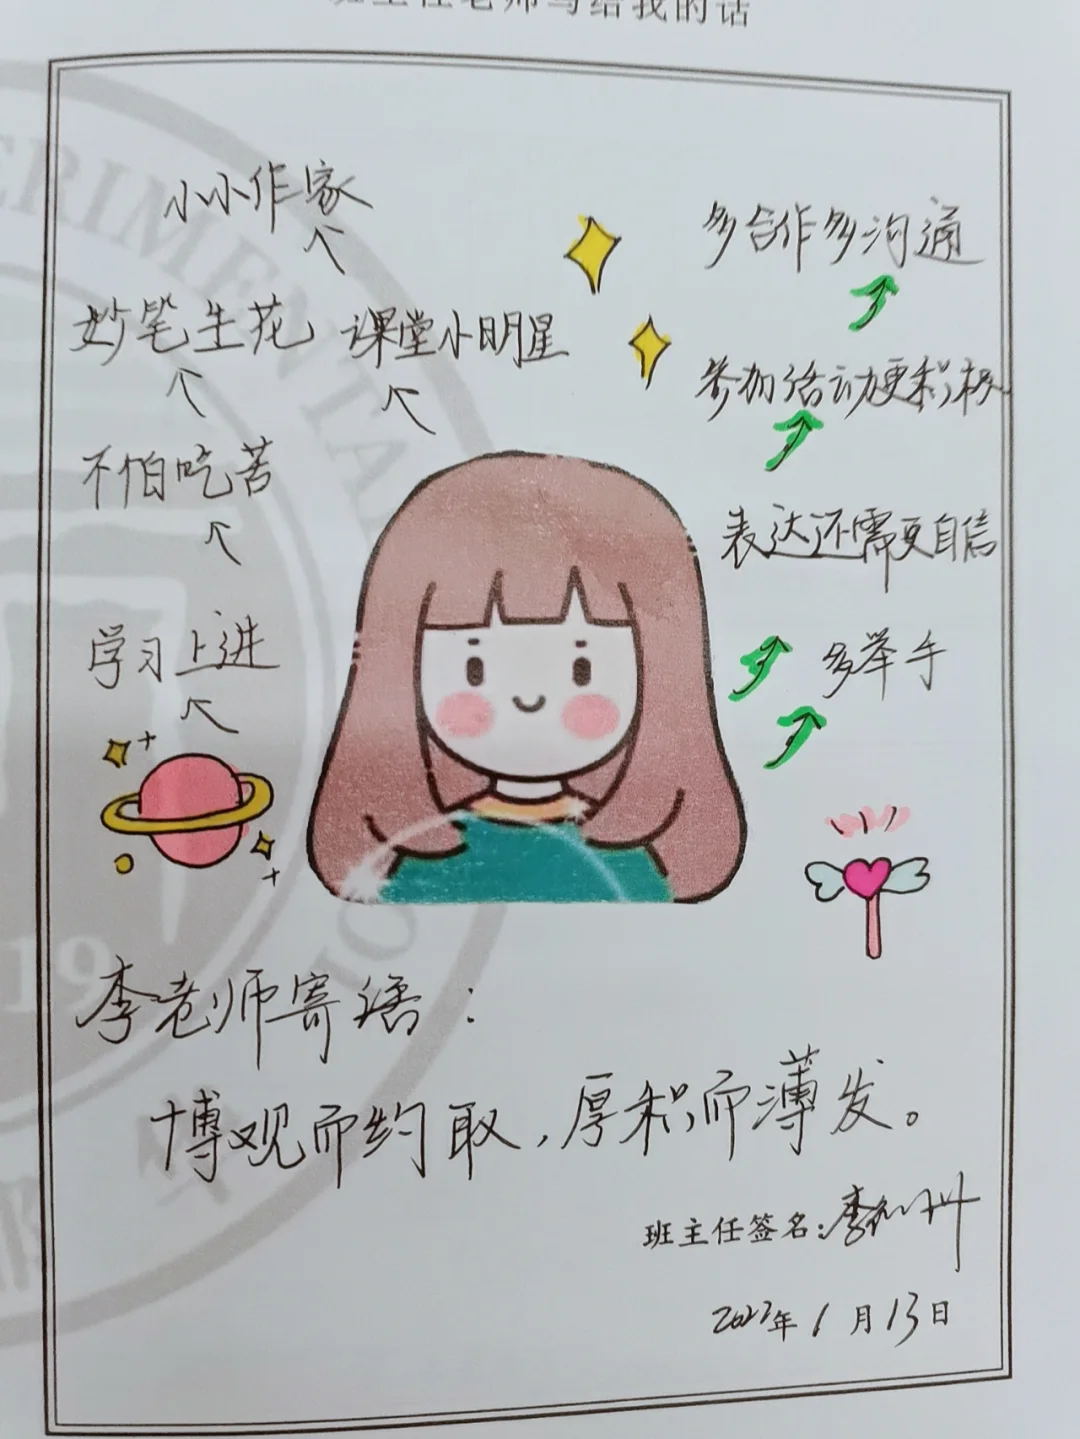 班主任老师写给我的话
小小作家
妙笔生花
课堂小明星
不怕吃苦
学习上进
多合作多沟通
参加活动更积极
表达还需更自信
多举手
ERIMENTAL
19
李老师寄语：
博观而约取，厚积而薄发。
班主任签名：李
2023年1月13日